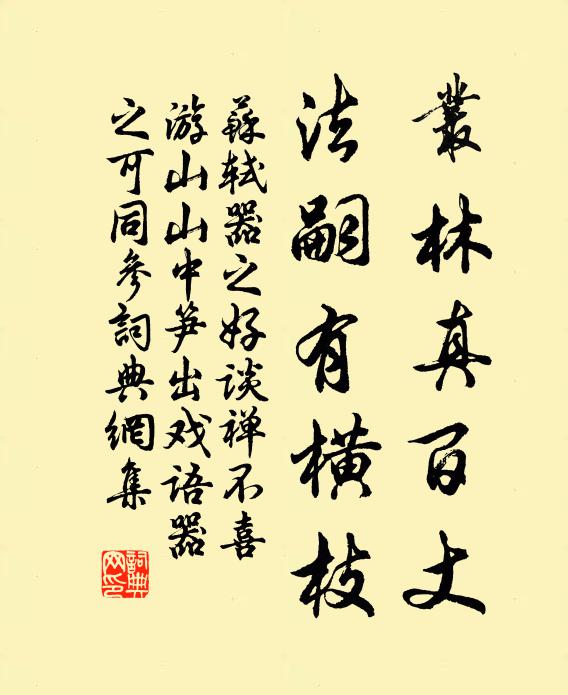 叢林真百丈
法嗣有橫枝
蘇軾器之好談禅不喜
游山山中笋出戏语器
之可同參詞典網集
詞典网印